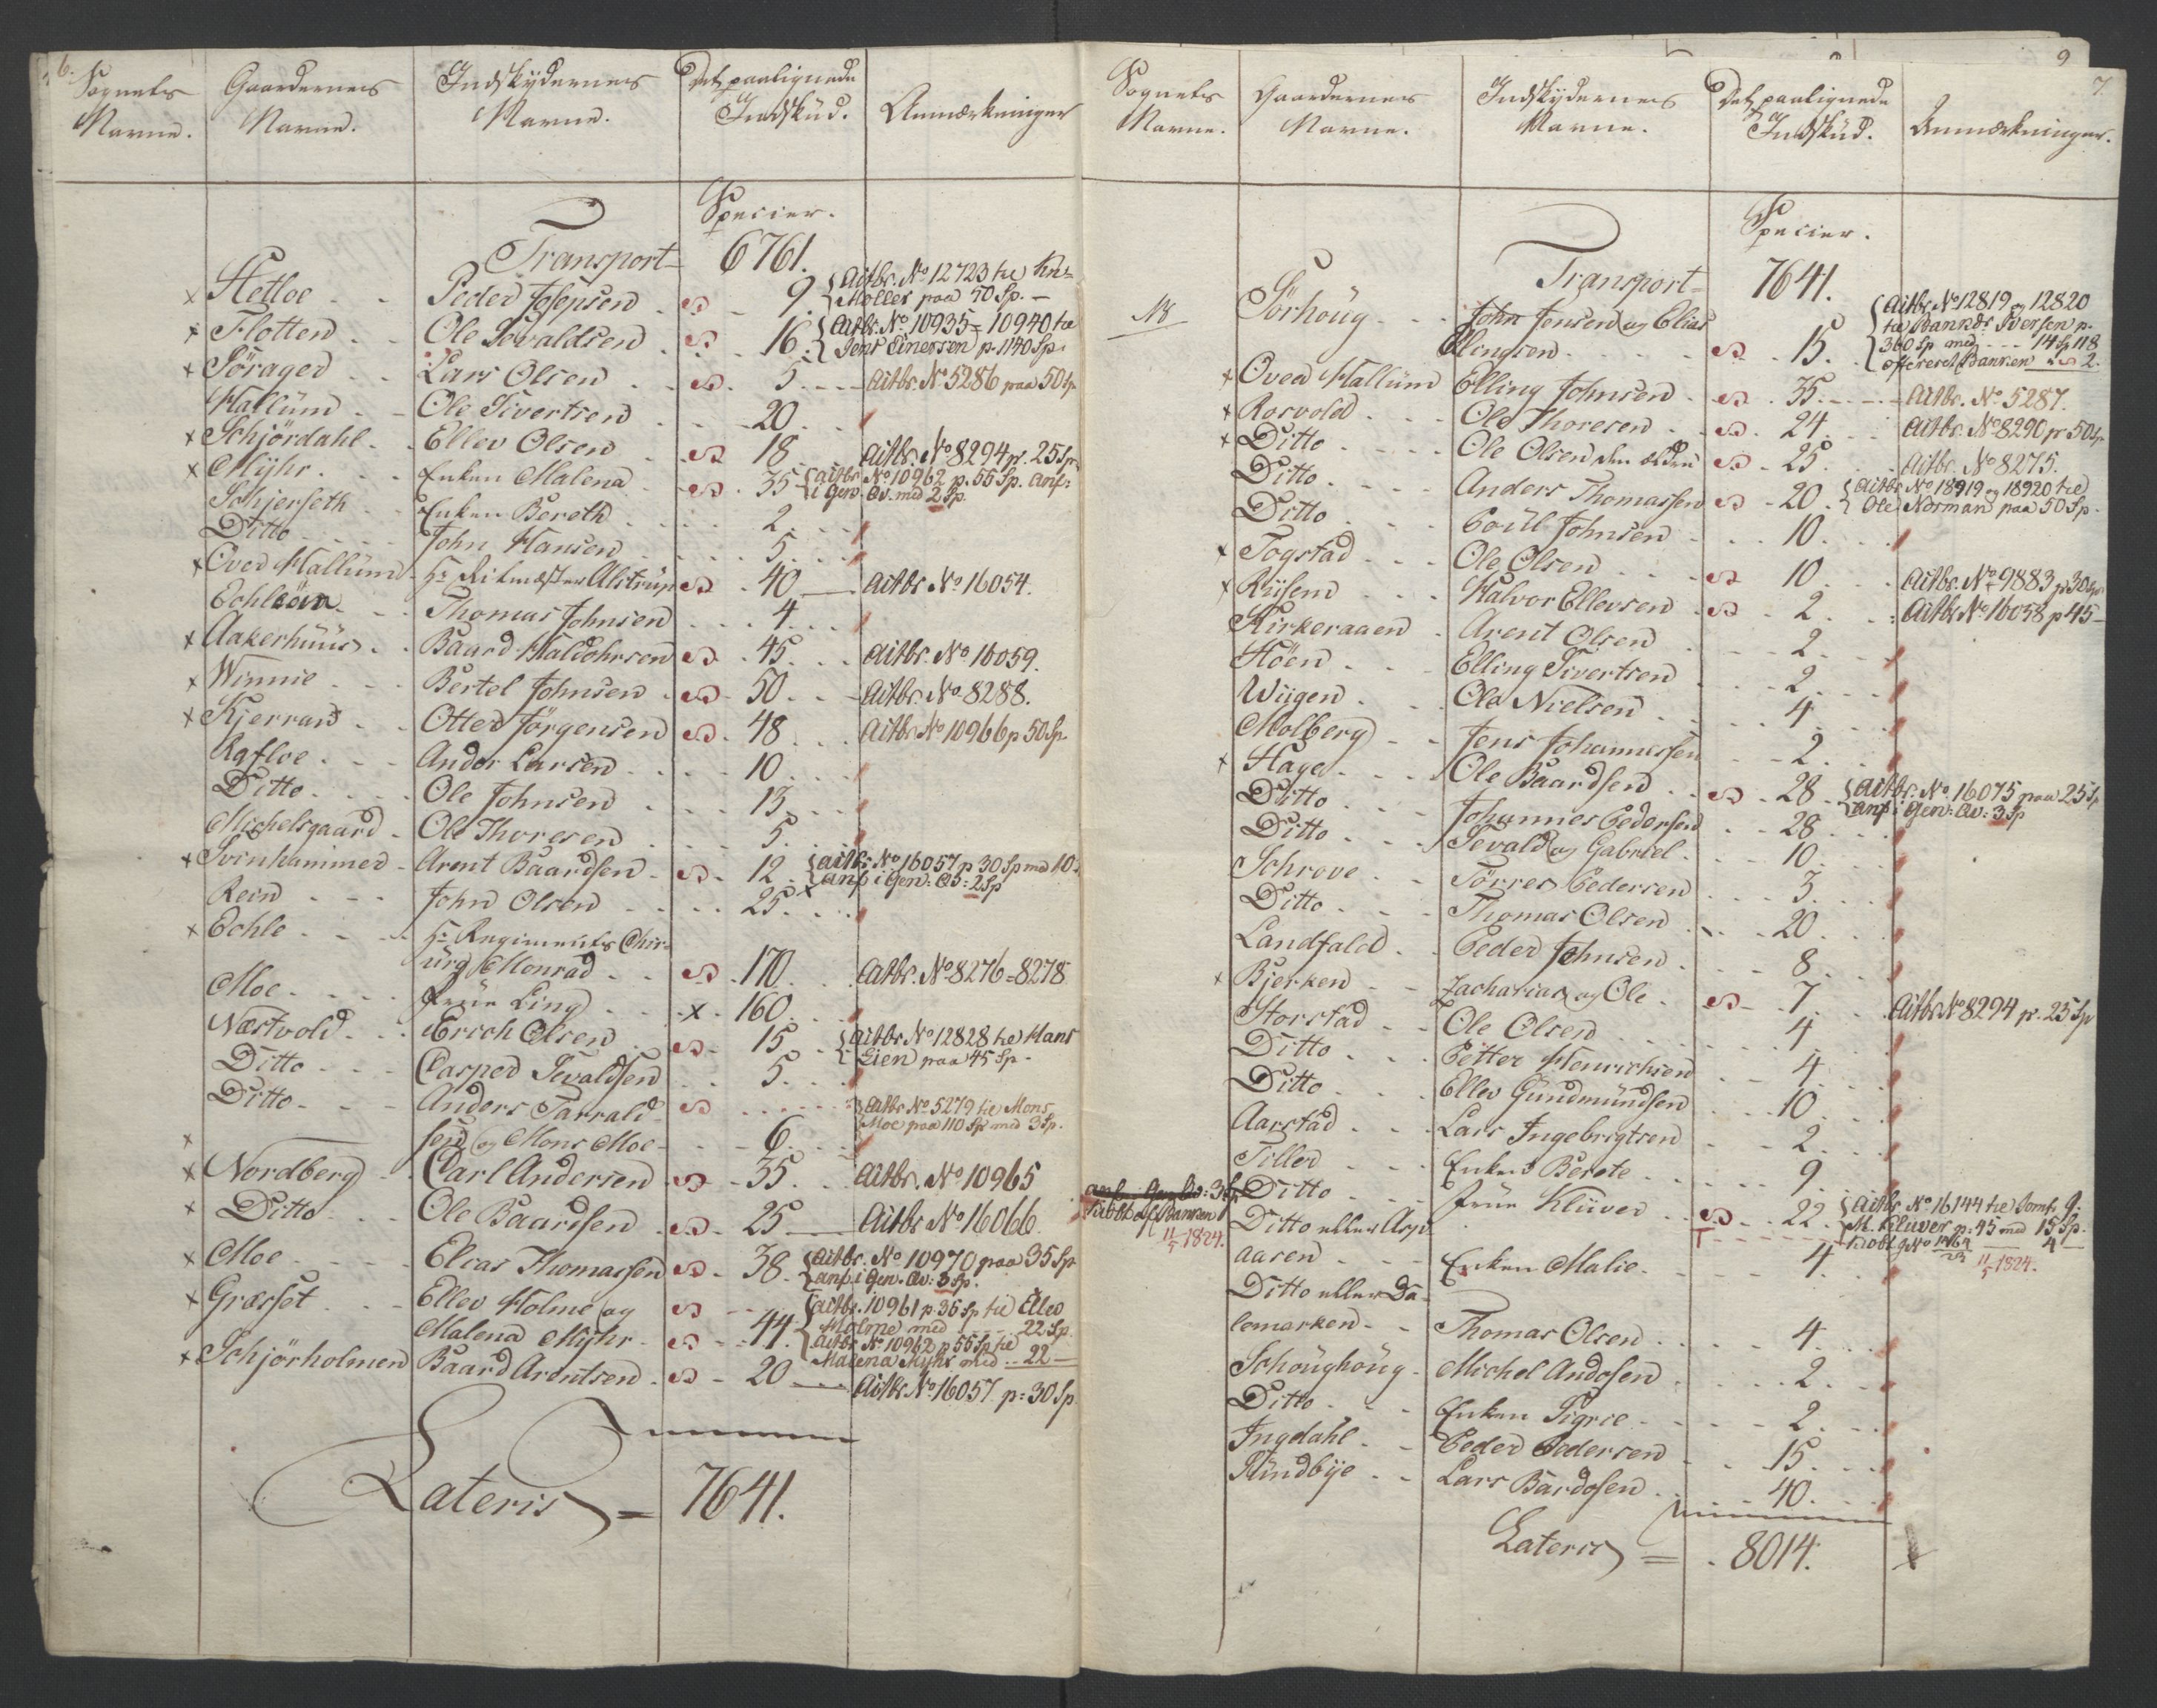 6.
Sognets Navne. Gaardernes Navne. Indskydernes Navne. Det paalignede Indskud. Anmærkninger
Specier.
Transport 6761.
x Hetloe Peder Johnsen 9. Actbr. No 12723 til
Möller paa 50 Sp.
x Flotten Ole Sevaldsen 16. Actbr. No 10935 = 10940 til
Jens Einersen p. 1140 Sp.
x Söraged Lars Olsen 5. Actbr. No 5286 paa 50 Sp
Hallüm Ole Sivertsen 20.
x Schjördahl Ellev Olsen 18 Actbr. No 8294 p. 25 Sp
x Myhr Enken Malena 35 Actbr No 10962 p. 55 Sp. anf:
i Gen. Qv. med 2 Sp.
Schjerseth Enken Bereth 2.
Ditto John Hansen 5.
x Oved Hallüm Hr Ritmester Alstrup 40 Actbr No 16054.
Echleöen Thomas Johnsen 4
x Aakerhuus Baard Haldohrsen 45. Actbr. No 16059.
x Winnie Bertel Johnsen 50. Actbr. No 8288.
x Kjerrand Otter Jörgensen 48 Actbr No 10966 p 50 Sp
Rafloe Ander Larsen 10.
Ditto Ole Johnsen 13.
Michelsgaard Ole Thoresen 5.
x Svinhammer Arent Baardsen 12 Actbr. No 16057 p 30 Sp med 10
anf i Gen: Qv: 2 Sp
Rein John Olsen 25.
x Echle Hr Regiments Chir-
urg Monrad 170. Actbr. No 8276 = 8278
Moe Frue Ling x 160.
Næstvold Erich Olsen 15 Actbr No 12828 til Hans
Eien paa 45 Sp
Ditto Casper Sevaldsen 5.
Ditto Anders Tarrald- Actbr No 5279 til Mons
Moe paa 110 Sp med 3 Sp.
x sen og Mons Moe 6.
x Nordberg Carl Andersen 35. Actbr. No 10965
x Ditto Ole Baardsen 25 Actbr No 16066.
x Moe Elias Thomassen 38. Actbr. No 10970 paa 35 Sp
anf i Gen. Qv: 3 Sp.
x Græsset Ellev Holme og Actbr. 10961 p 35 Sp til Ellev
Holme med 22 Sp.
Malena Myhr 44. Actbr No 10962 p 55 Sp til
Malena Myhr med 22
x Schjörholmen Baard Arentsen 20 Actbr No 16057 p: 30 Sp
Lateris = 7641.
9
7.
Sognets Navne. Gaardernes Navne. Indskydernes Navne. Det paalignede Indskud. Anmærkninger.
Specier.
Transport 7641.
N8 Sörhoug John Jensen og Elias Actbr No 12819 og 12820
til Bankdr Iversen p.
Elingsen 15. 360 Sp med 14 Sp 118
efteresed Banken 2.
x Oved Hallüm Elling Johnsen 35. Actbr. No 5287.
x Rosvold Ole Thoresen 24. Actbr. No 8290 p 50 Sp
x Ditto Ole Olsen den ældere 25. Actbr. No 8275.
Ditto Anders Thomassen 20. Actbr No 18919 og 18920 til
Ole Norman paa 50 Sp.
Ditto Poul Johnsen 10.
x Togstad Ole Olsen 10 Actbr. No 9883 p 30 Sp
x Riisem Halvor Ellevsen 2. Actbr No 16058 p 45
Kirkeraaen Arent Olsen 2.
Höen Elling Sivertsen 2.
Wiigen Ole Nielsen 4.
Molberg Jens Johannessen 2.
x Hage Ole Baardsen 28 Actbr. No 16075 paa 25 Sp
anf i Gen: Qv: 3 Sp
Ditto Johannes Pedersen 28
Ditto Sevald og Gabriel 10.
Schrove Törres Pedersen 3.
Ditto Thomas Olsen 20.
Landfald Peder Johnsen 8.
x Bjerken Zacharias og Ole 7 Actbr No 8294 p. 25 Sp
Storstad Ole Olsen 4
Ditto Petter Henrichsen 4.
Ditto Ellev Gundmundsen 10.
Aarstad Lars Ingebrigtsen 2.
Tilled Enken Berete 9.
anf. i Gen Qv: 3 Sp Ditto Frue Klüver 22. Actbr No 16144 til Jomf. G.
M. Klüver p. 45 med 15 Sp.
kiöbt af Banken
11/5 1824.
Ditto eller Asp-
aasen Enken Malie 4. 11/5 1824.
Ditto eller Da-
lemarken Thomas Olsen 4.
Schoughoug Michel Andosen 2.
Ditto Enken Sigrie 2.
Ingdahl Peder Pedersen 15.
Rundbye Lars Bardosen 40.
Lateris = 8014.